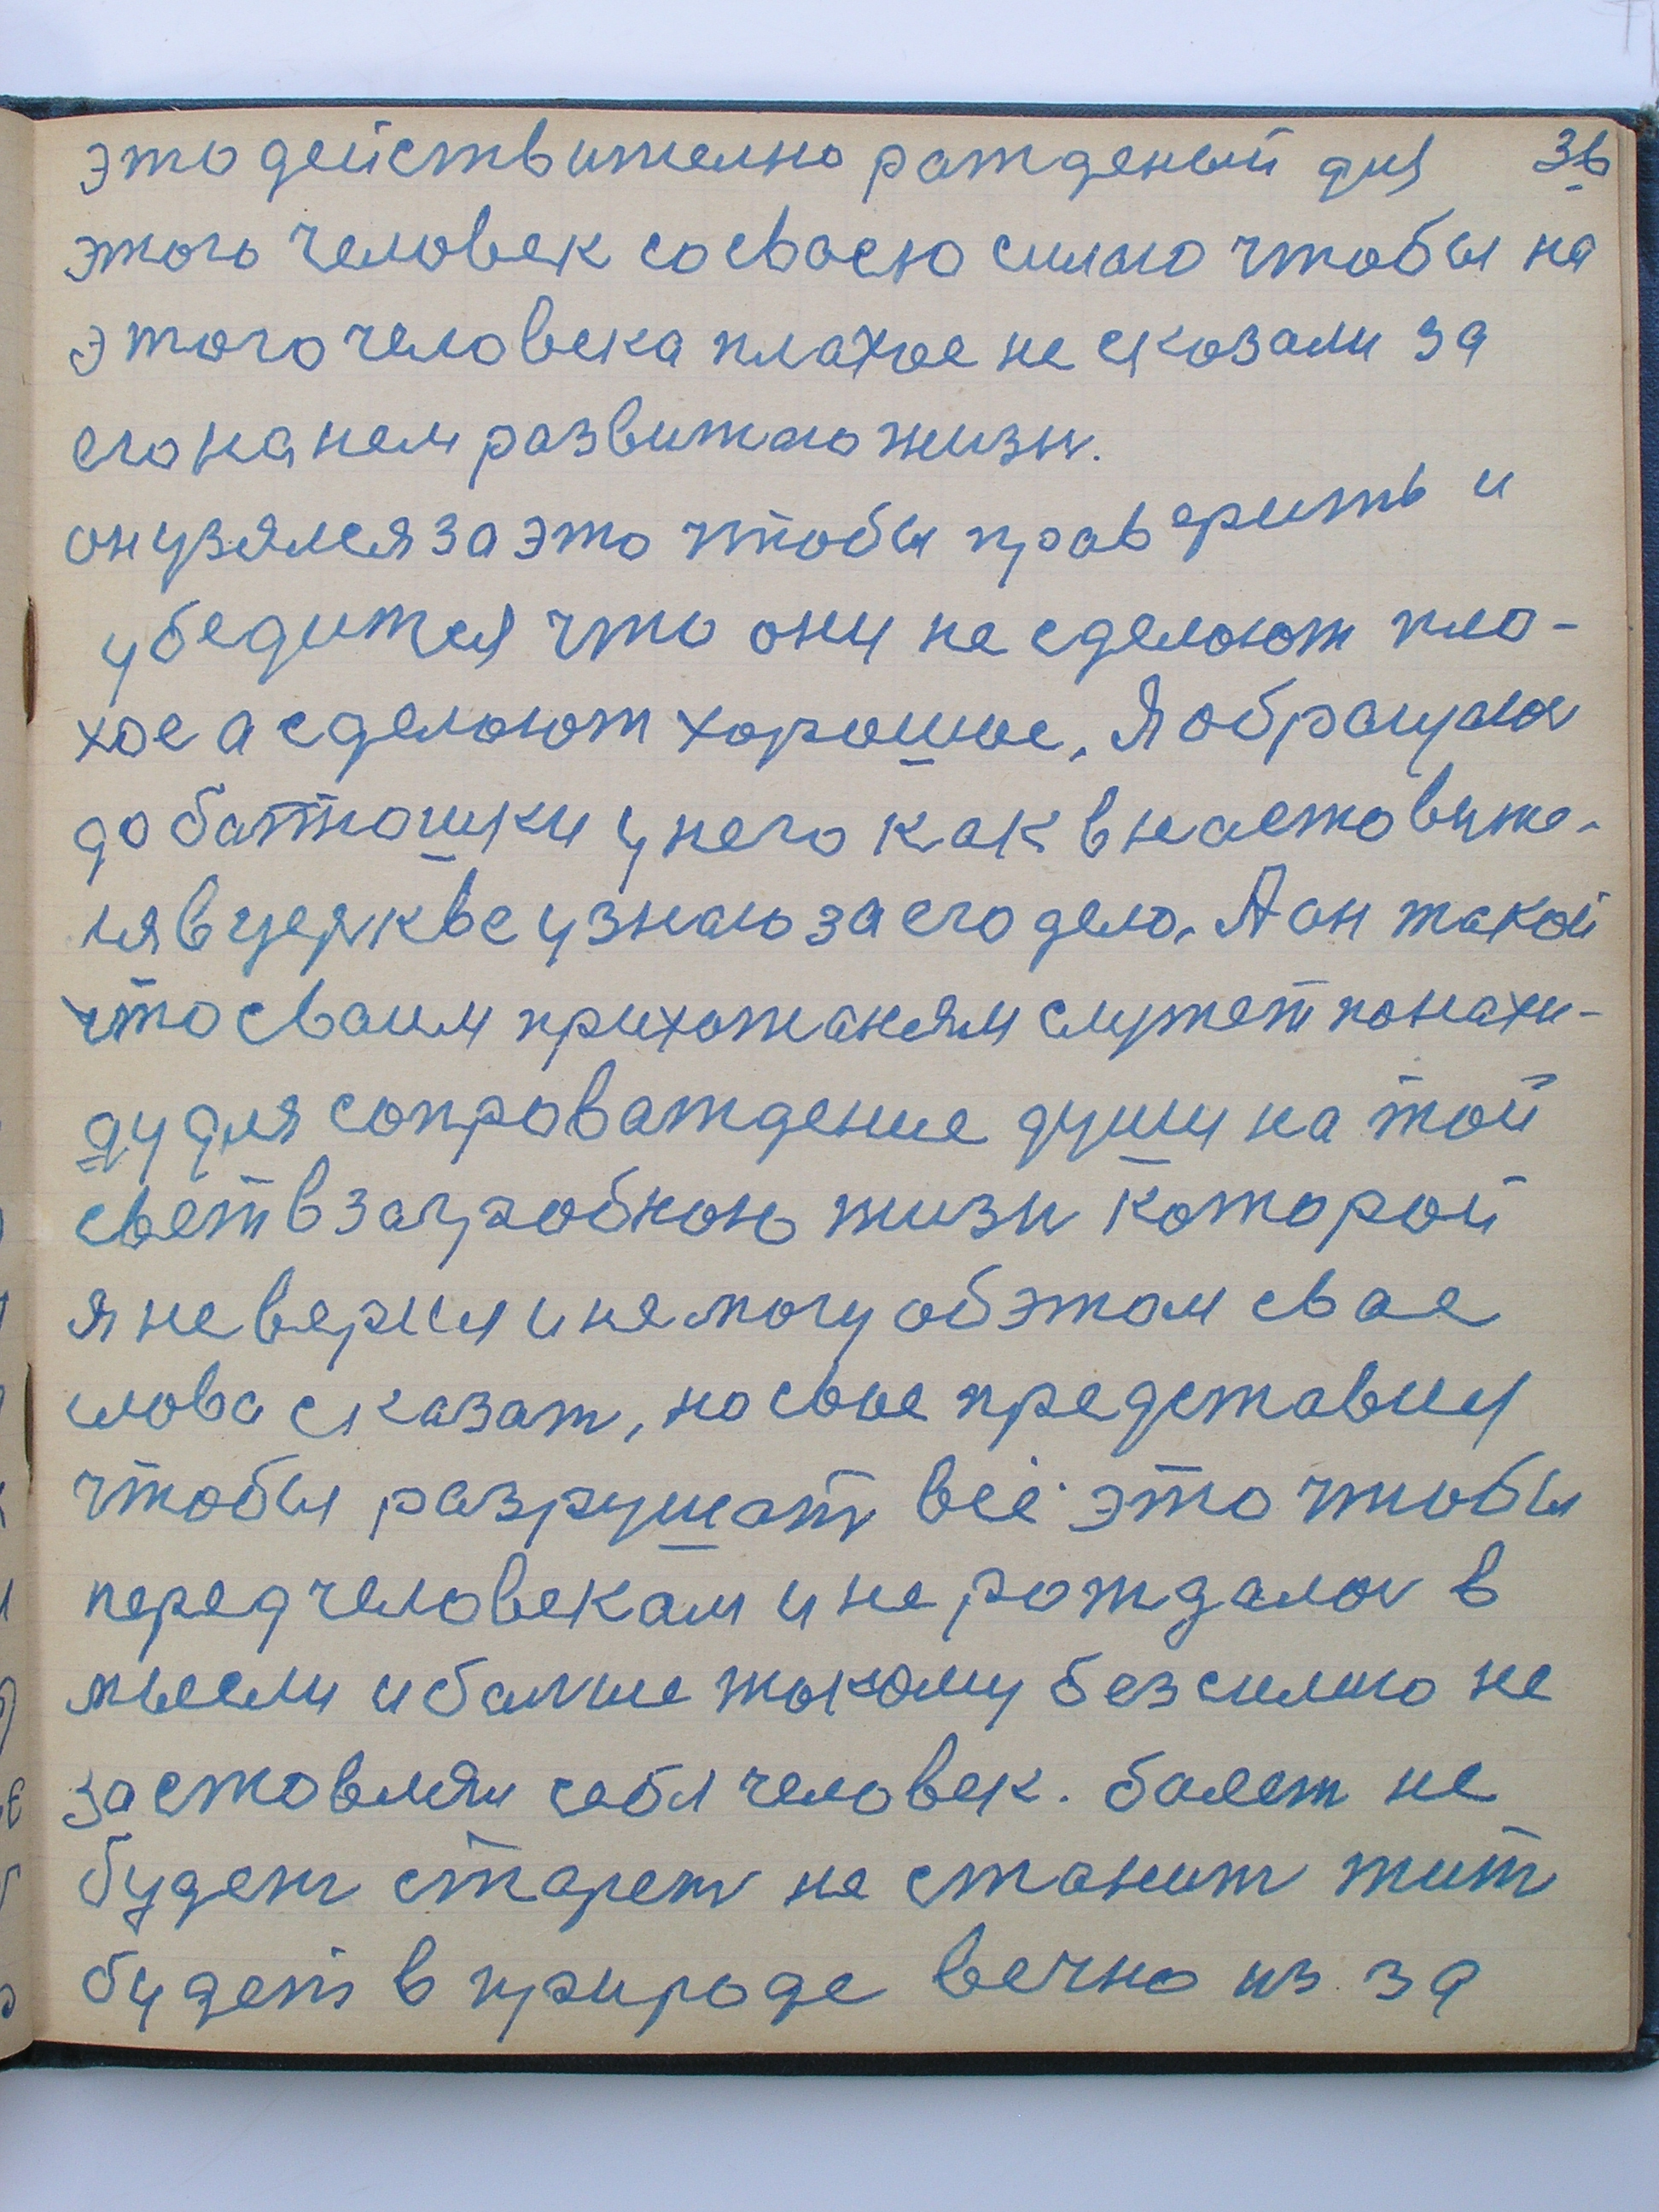 это действително ражденый для 36
этого человек со сваею силаю чтобы на
этого человека плахое не сказали за
его на нем развитаю жизн.
он узялся за это чтобы праверить и
убедится что они не сделают пло-
хое а сделают хорошое. Я обращуюс
до баттюшки у него как в настовите-
ля в церкве узнаю за его дело. А он такой
что сваим прихожаням служет понахи-
ду для сопроваждение души на той
свет в загробною жизн которой
я не верил и не могу об этом свае
слова сказат, но свое представил
чтобы разрушат всё это чтобы
перед человекам и не рождалос в
мысли и балше такому без силаю не
заставлял себя человек. болет не
будет старет не станит жит
будет в природе вечно из за